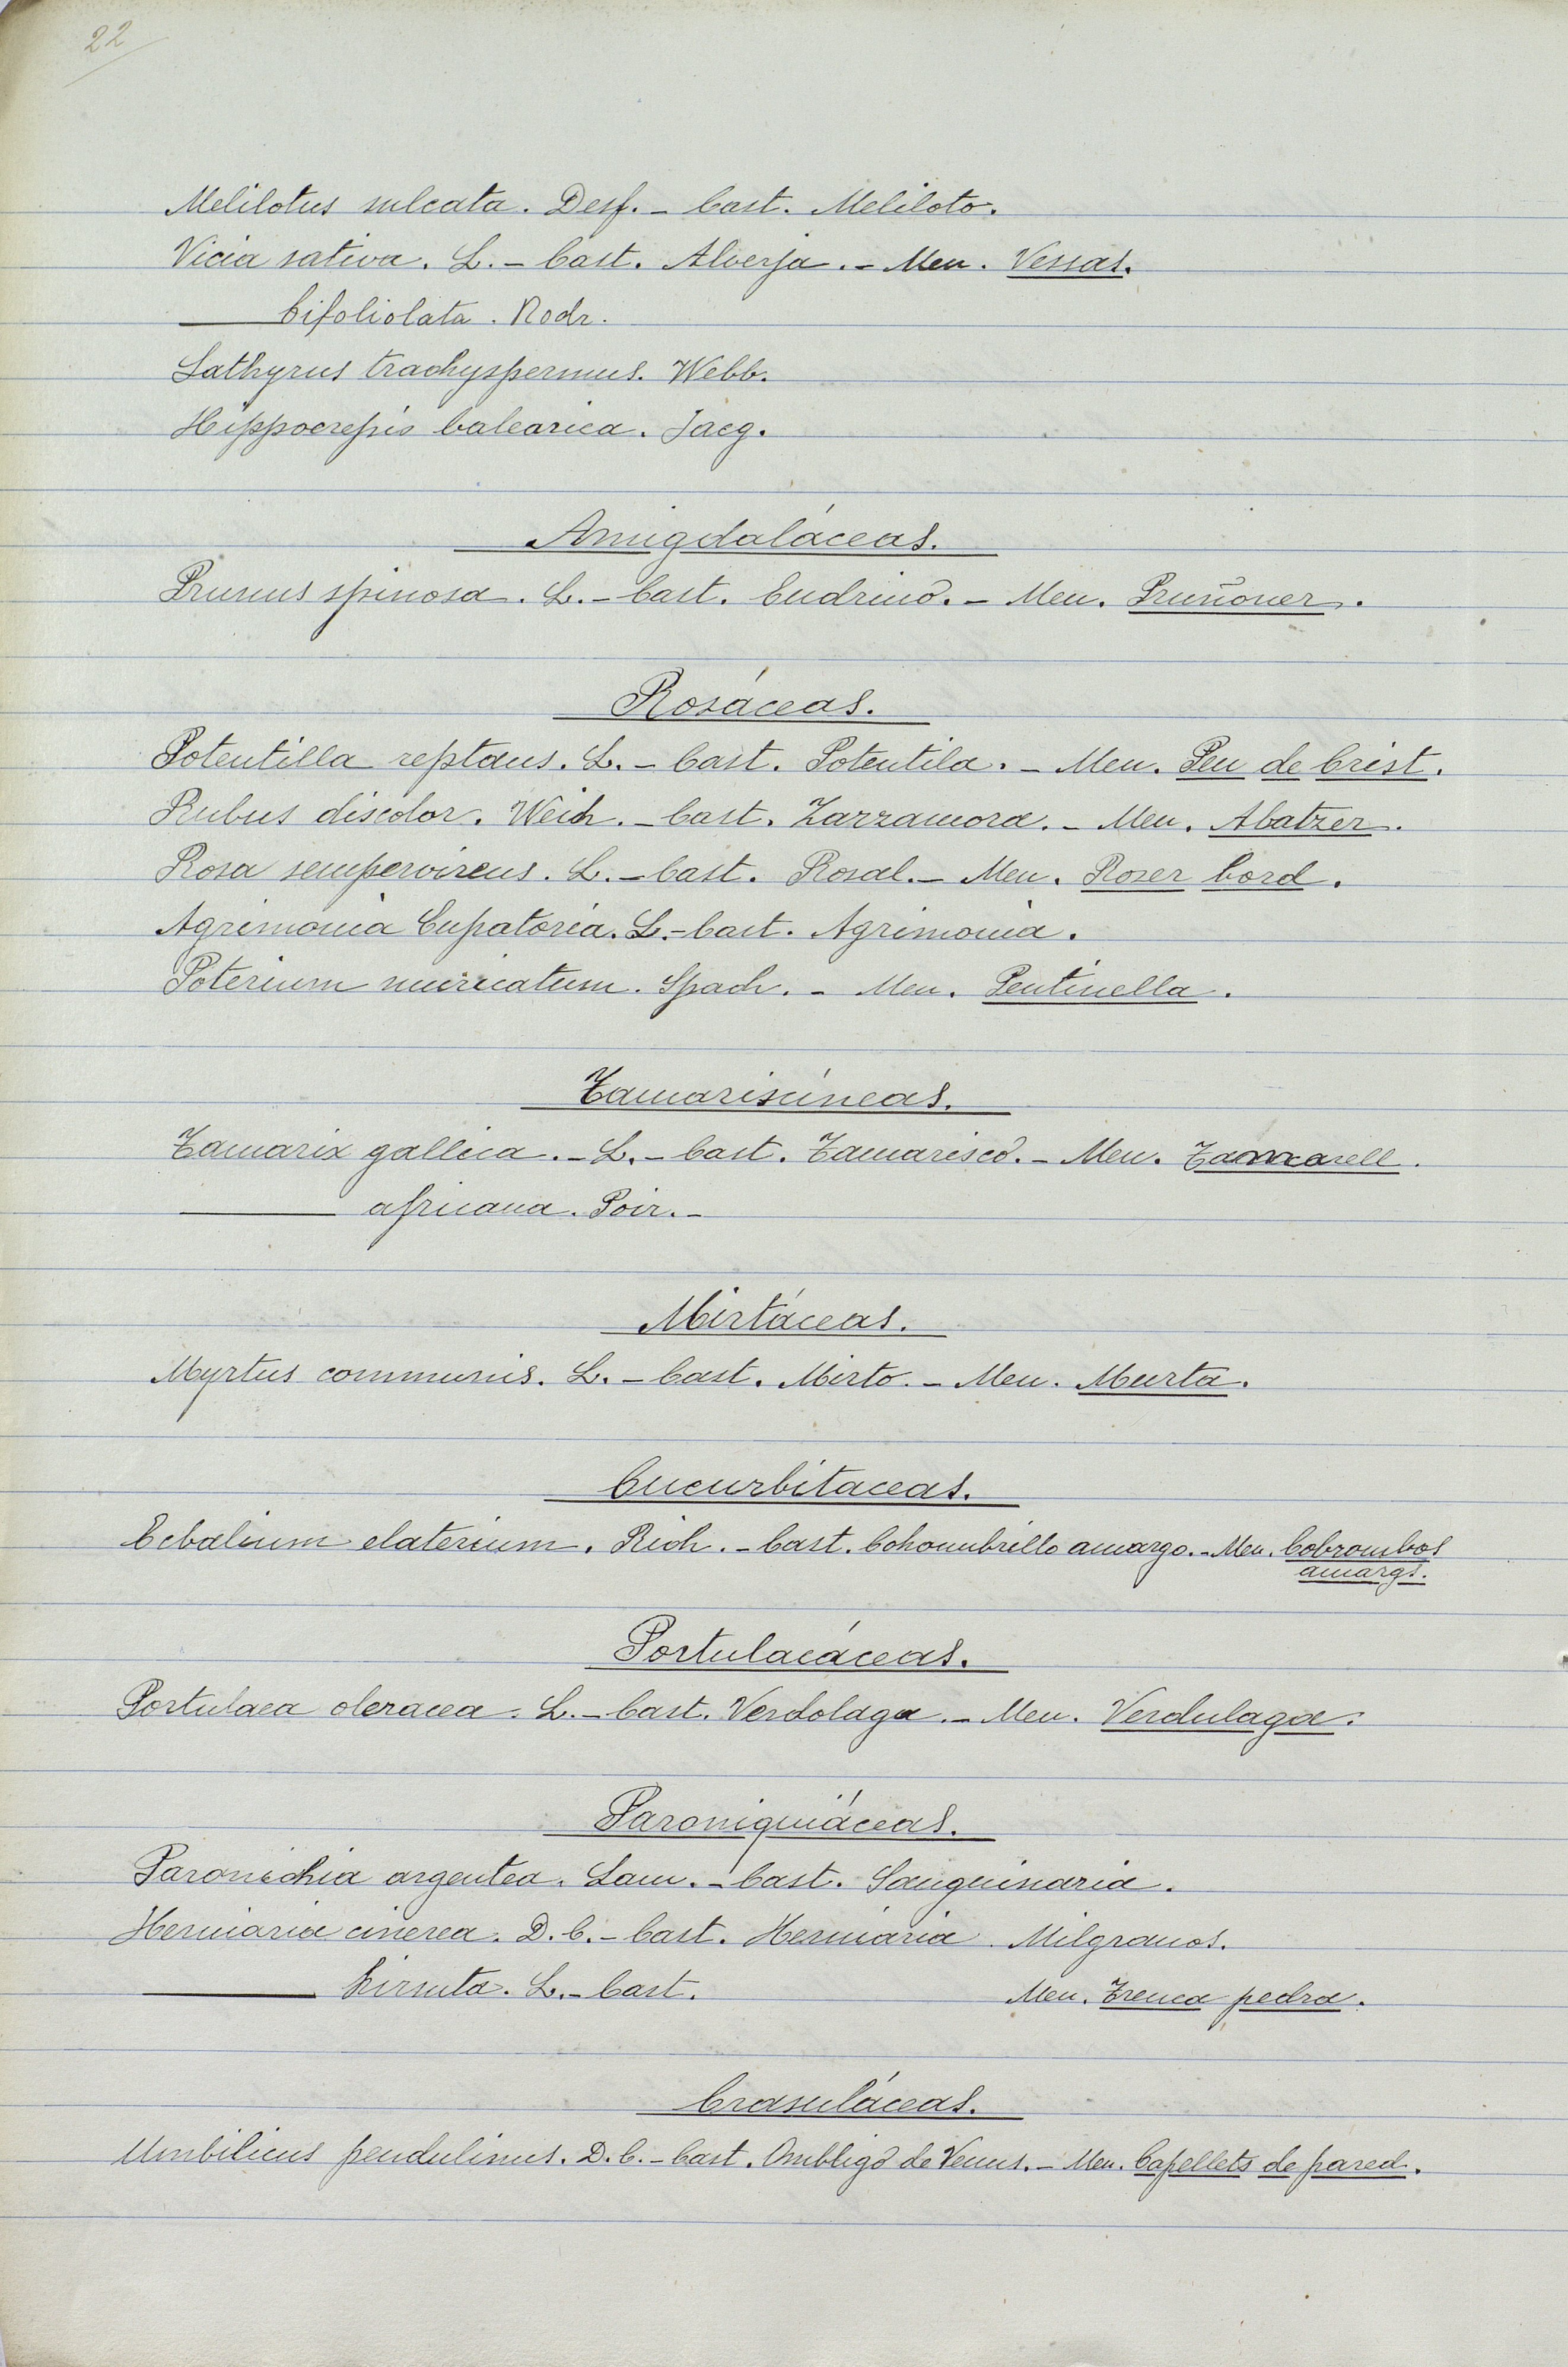 22
Melilotus sulcata. Desf. - Cast. Meliloto.
Vicia sativa. L. - Cast. Alverja. - Men. Vessas.
——— bifoliolata. Rodr.
Lathyrus trachyspermus. Webb.
Hippocrepis balearica. Jacq.
Amigdaláceas.
Prunus spinosa. L. - Cast. Endrino. - Men. Pruñoner.
Rosáceas.
Potentilla reptans. L. - Cast. Potentila. - Men. Peu de Crist.
Rubus discolor. Weich. - Cast. Zarzamora. - Men. Abatzer.
Rosa sempervirens. L. - Cast. Rosal. - Men. Roser bord.
Agrimonia Eupatoria. L. - Cast. Agrimonia.
Poterium muricatum. Spach. - Men. Pentinella.
Tamariscíneas.
Tamarix gallica. - L. - Cast. Tamarisco. - Men.
——— africana. Poir. -
Mirtáceas.
Myrtus communis. L. - Cast. Mirto. - Men. Murta.
Cucurbitaceas.
Ecbalium elaterium. Rich. - Cast. Cohombrillo amargo. - Men. Cobrombos
amargs.
Portulacáceas.
Portulaca oleracea. L. - Cast. Verdolaga. - Men. Verdulaga.
Paroniquiáceas.
Paronichia argentea. Lam. - Cast. Sanguinaria.
Herniaria cinerea. D. C. - Cast. Herniaria Milgranos.
——— hirsuta. L. - Cast. Men. Trenca pedra.
Crasuláceas.
Umbilicus pendulinus. D. C. - Cast. Ombligo de Venus. - Men. Capellets de pared.